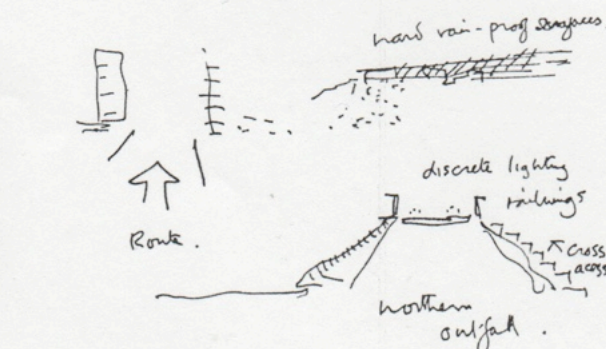 hard rain-proof surfaces
discrete lighting
railings
Route.
cross
access
northern
outfall.